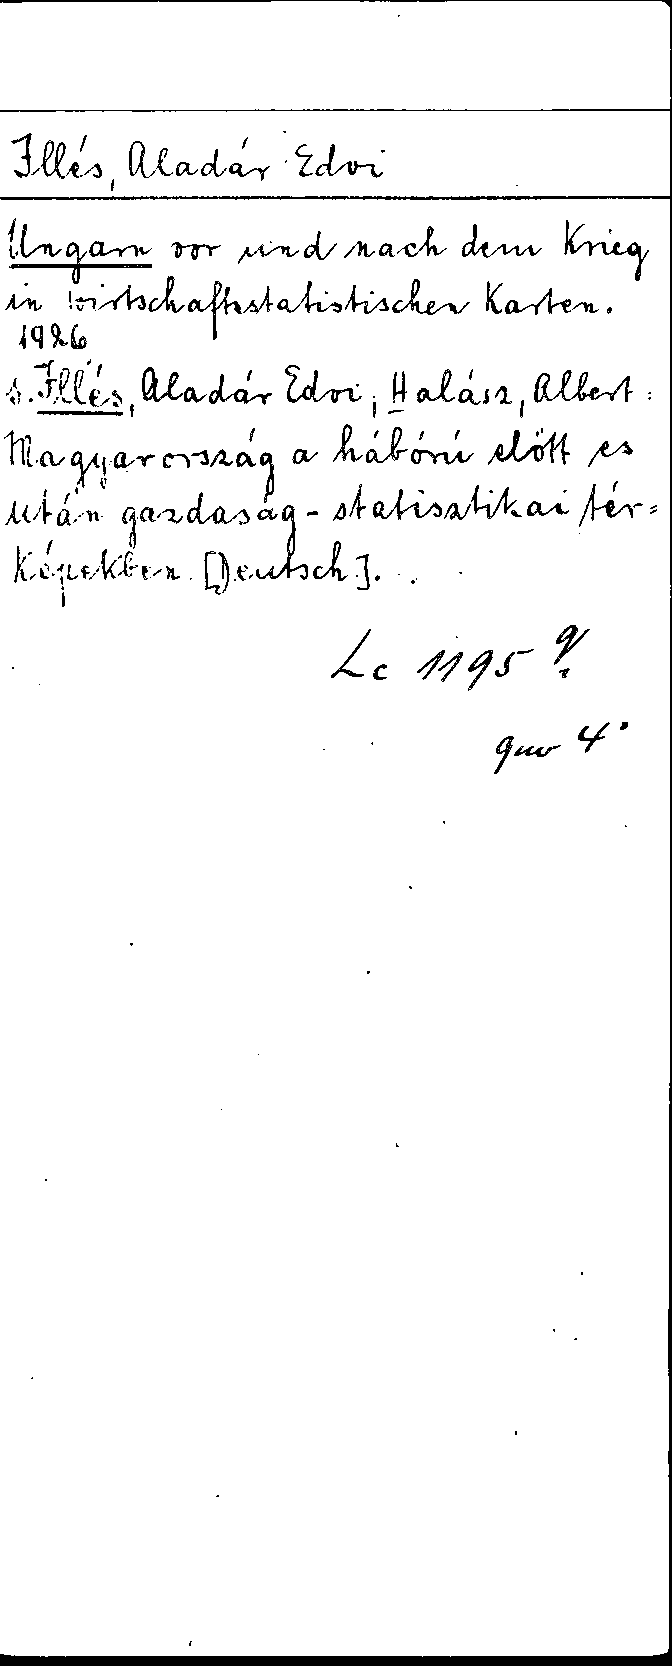 Illés, Aladár Edvi
Ungarn vor und nach dem Krieg
in wirtschaftsstatistischen Karten.
1926
s. Illés, Aladár Edvi; Halász, Albert:
Magyarország a háború elött es
után gazdaság-statisztikai tér=
képekben [Deutsch].
Lc 1195 q
4°